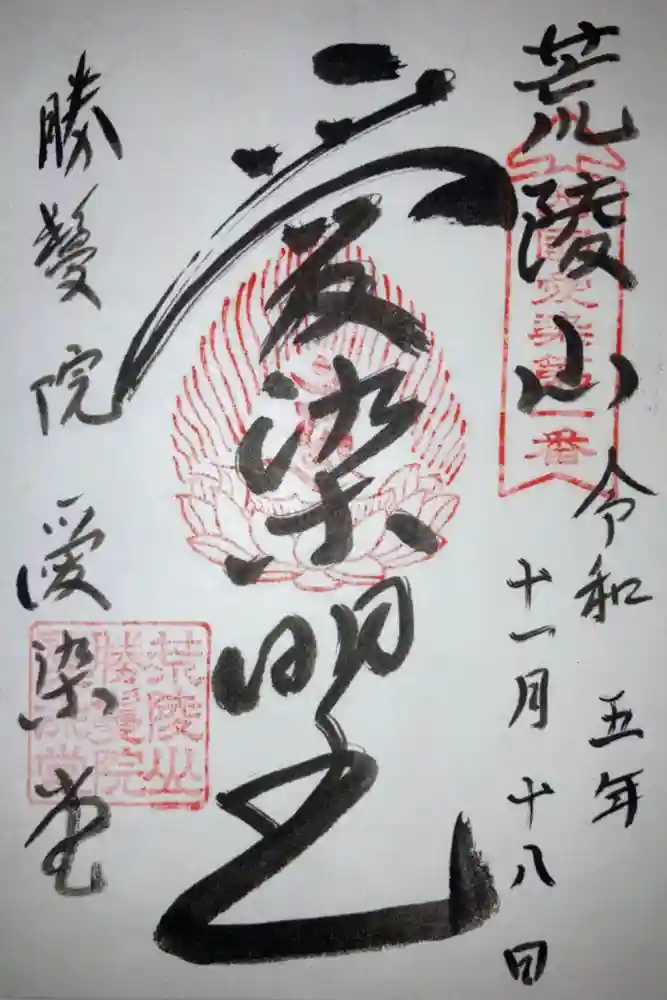 荒陵山
令和五年
十一月十八日
西国愛染第一番
愛染明王
勝鬘院 愛染堂
荒陵山
勝鬘院
愛染堂